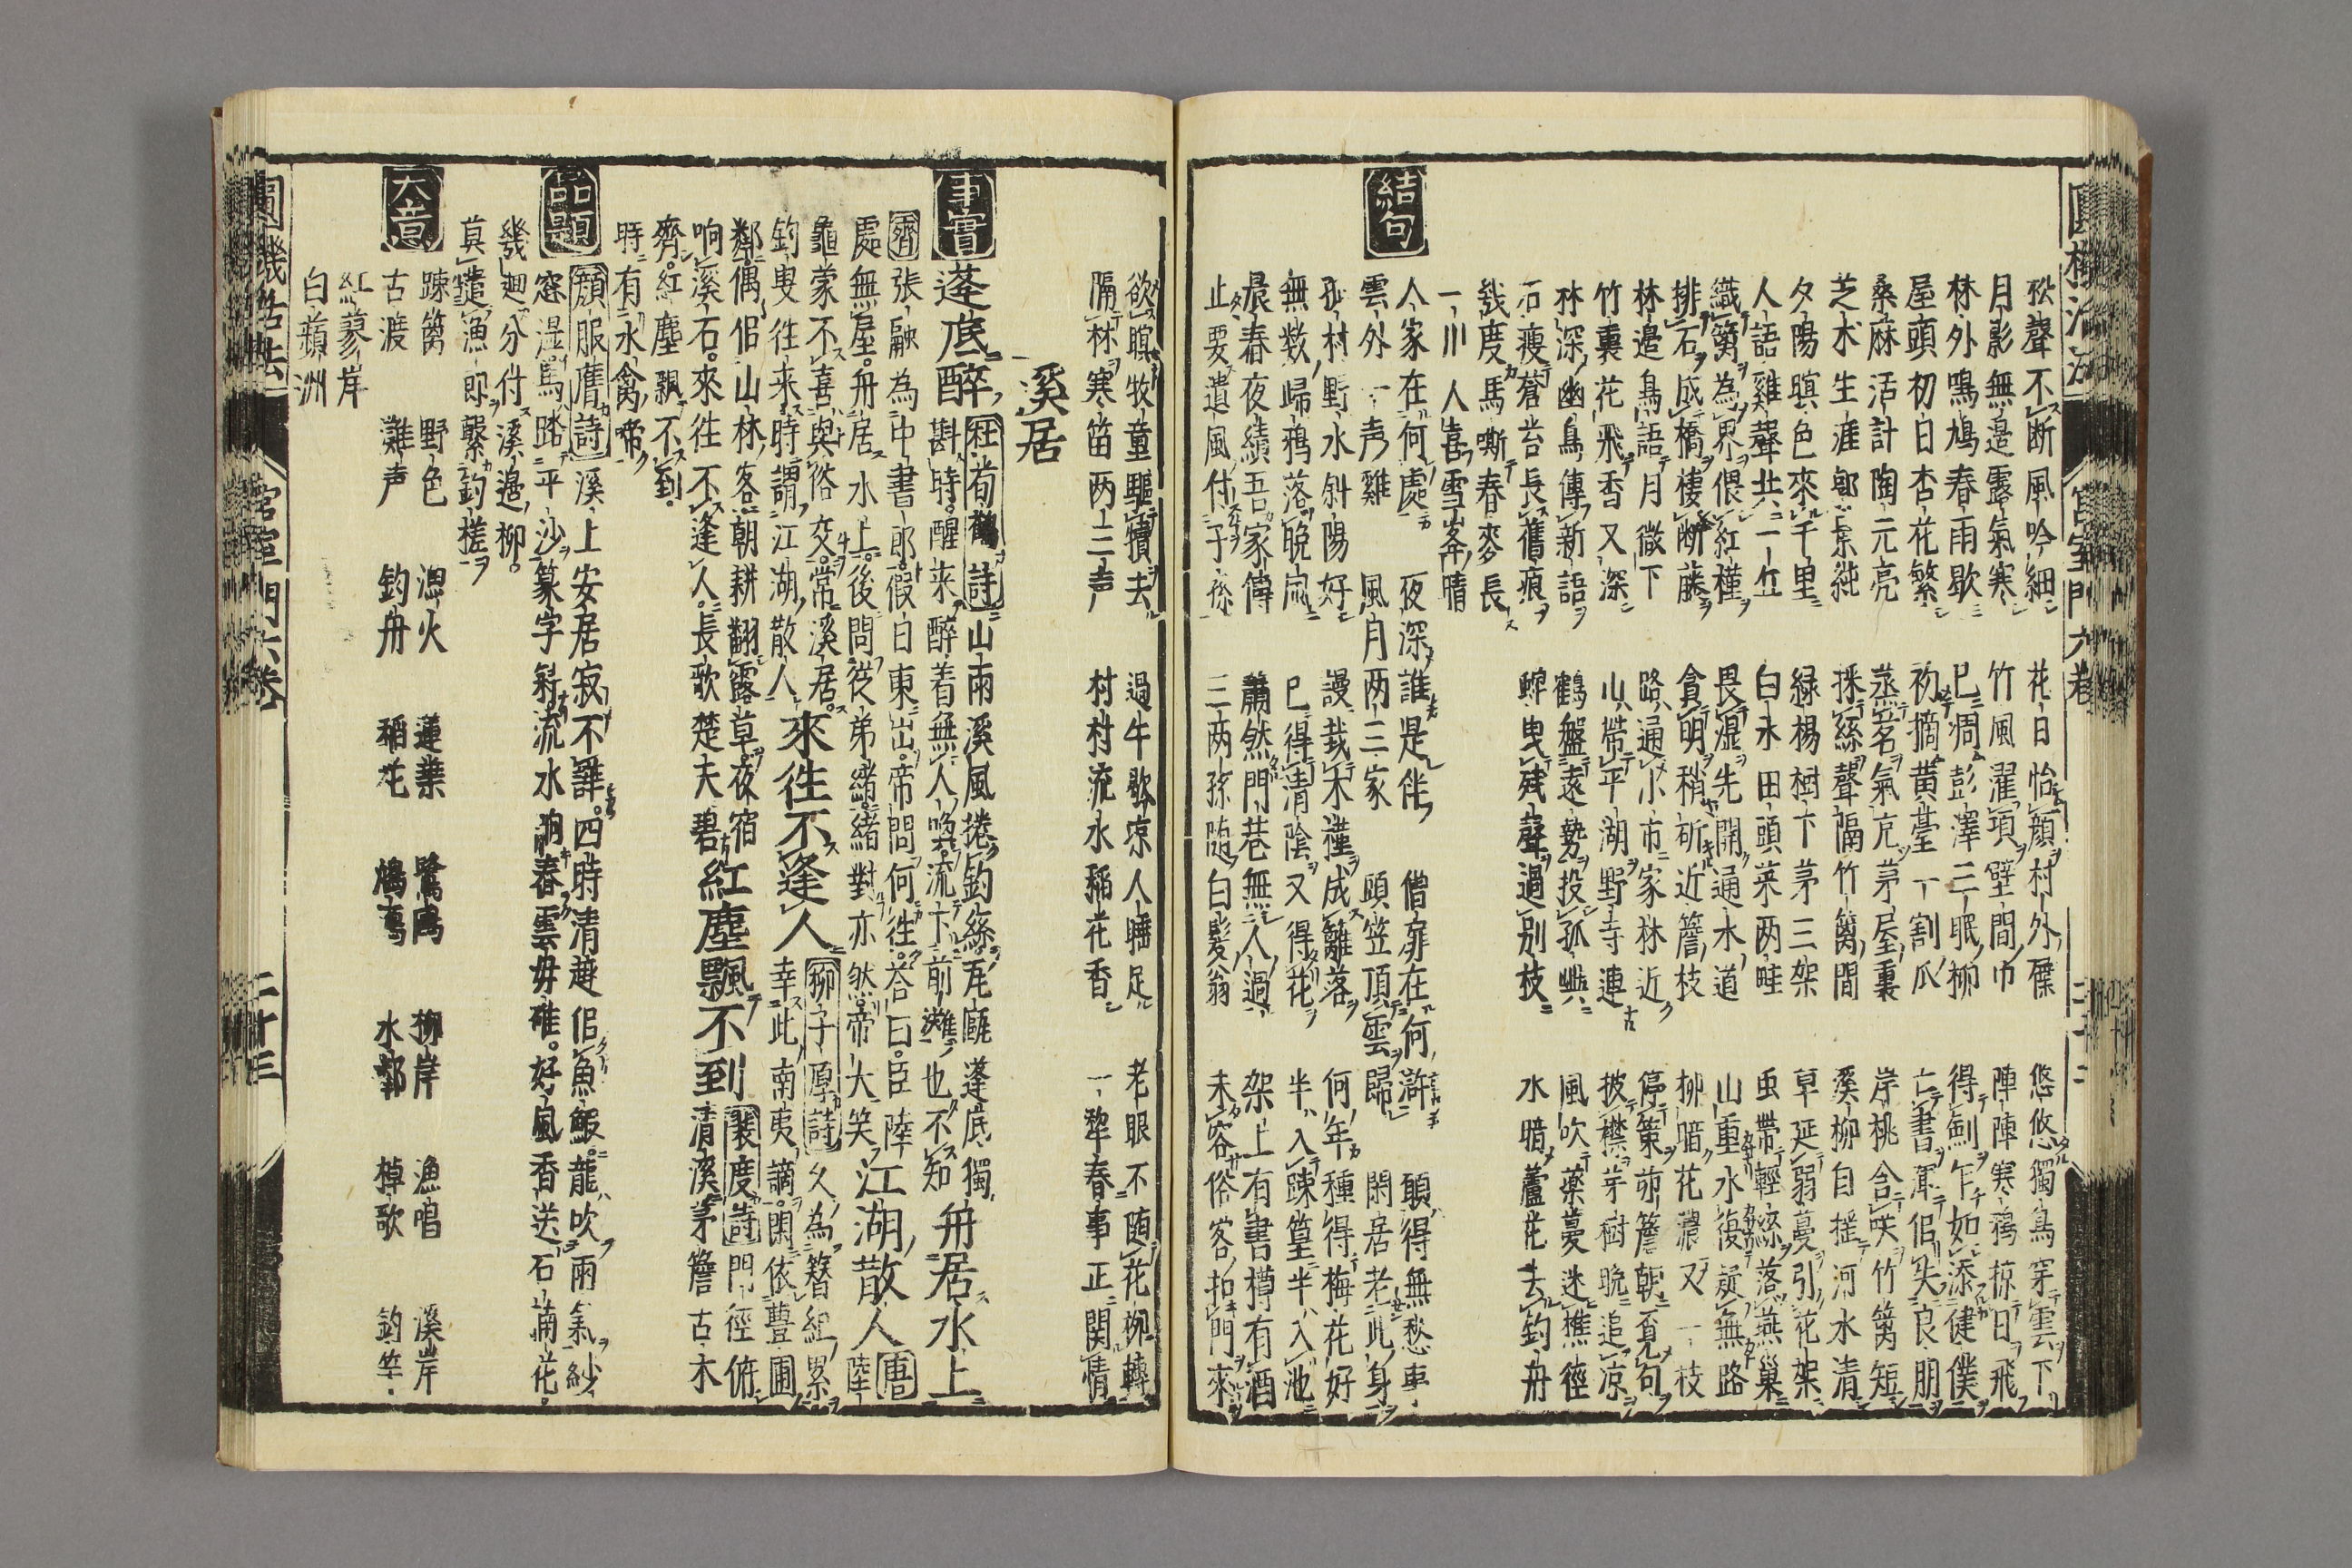 松聲不断風吟細 花日怡顏村外 悠悠獨鳥穿雲下
月影無邊露氣寒 竹風濯頂壁間巾 陣陣寒鴉掠日飛
林外鳴鳩春雨歇 已凋彭澤三眠柳 得劍乍如添健僕
屋頭初日杏花繁 初摘黃臺一割瓜 亡書渾似失良朋
桑麻活計陶元亮 蒸茗氣克茅屋裏 岸桃含咲竹篱短
芝术生涯 採絲聲隔竹篱間 溪柳自搖河水清
夕陽暝色來千里 緑楊樹下茅三架 草延弱蔓引花架
人語雞聲共一丘 白水田頭菜两畦 虫帶輕絲落燕巢
織篱為界偎紅槿 畏湿先開通水道 山重水復疑無路
排石成橋棲断藤 貪明稍斫近簷枝 柳暗花濃又一枝
林邉鳥語月微下 路通小市家林近 停策茆簷朝覓句
竹裏花飛香又深 山帶平湖野寺連 披襟芽樹晩追凉
林深幽鳥傳新語 鶴盤遠勢投孤嶼 風吹藥蔓迷樵徑
石瘦蒼苔長舊痕 蝉曳残聲過别枝 水暗蘆花去釣舟
幾度馬嘶春麥長
一川人喜雪峯晴
結句
人家在何處 夜深誰是伴 僧扉在何許 頭得無愁事
雲外一声雞 風月两三家 頭笠頂雲歸 閑居老此身
孤村野水斜陽好 謾栽禾槿成籬落 何年種得梅花好
無数歸鴉落晩 已得清陰又得花 半入踈篁半入池
晨春夜績吾家傳 蕭然門巷無人過 架上有書樽有酒
止要遺風付子孫 三两孫随白髪翁 未容俗客扣門來
欲暝牧童驅犢去 過牛歌凉人睡足 老眼不随花柳轉
隔林寒笛两三声 村村流水稲花香 一犂春事正関情
溪居
事實
蓬底醉 杜荀鶴詩 山雨溪風捲釣絲瓦甌蓬底獨
斟時醒来醉着無人喚流下前灘也不知 舟居水上
齊 張融為中書郎假日東出帝問何徃荅曰臣陸
處無屋舟居水上後問從弟緒緒對亦然帝大笑 江湖散人 唐 陸
龜蒙不喜與俗交常溪居 來徃不逢人 柳子厚詩 久為簪組累
釣曳徃来時謂江湖散人 幸此南夷謫閑依豊圃
鄰偶佀山林客朝耕翻露草夜宿
响溪石來徃不逢人長歌楚夫碧 紅塵飄不到 裴度詩 門徑俯清溪茅簷古木
齊紅塵飄不到
時有水禽啼
品題
顔服膺詩 溪上安居寂不譁四時清趣佀魚鰕龍吹雨氣紗
窓湿鳥踏平沙篆字斜流水响春雲毋碓好風香送石菖花
幾廻分付溪邉柳
莫遣漁郎繫釣槎
大意
踈篱 野色 漁火 蓮葉 鷺鷗 柳岸 漁唱 溪岸
古渡 灘声 釣舟 稲花 水郭 棹歌 釣竿
紅蓼岸
白蘋洲
宮室門六卷
二十三